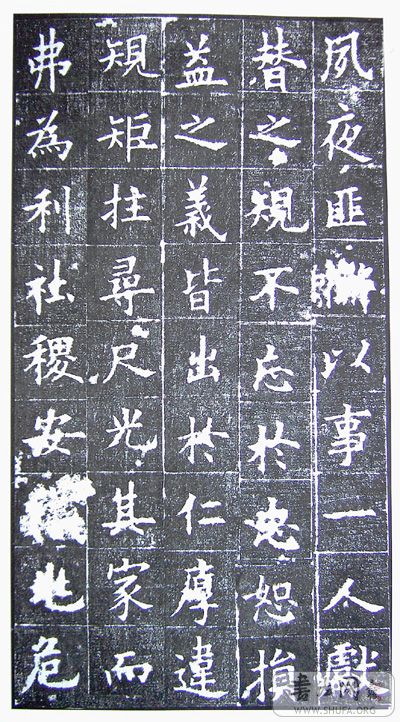 夙夜匪以事一人獻
替之規不忘於忠恕損
益之義皆出於仁厚違
規矩枉尋尺光其家而
弗為利社稷安兆危
書法网
WWW.SHUFA.ORG